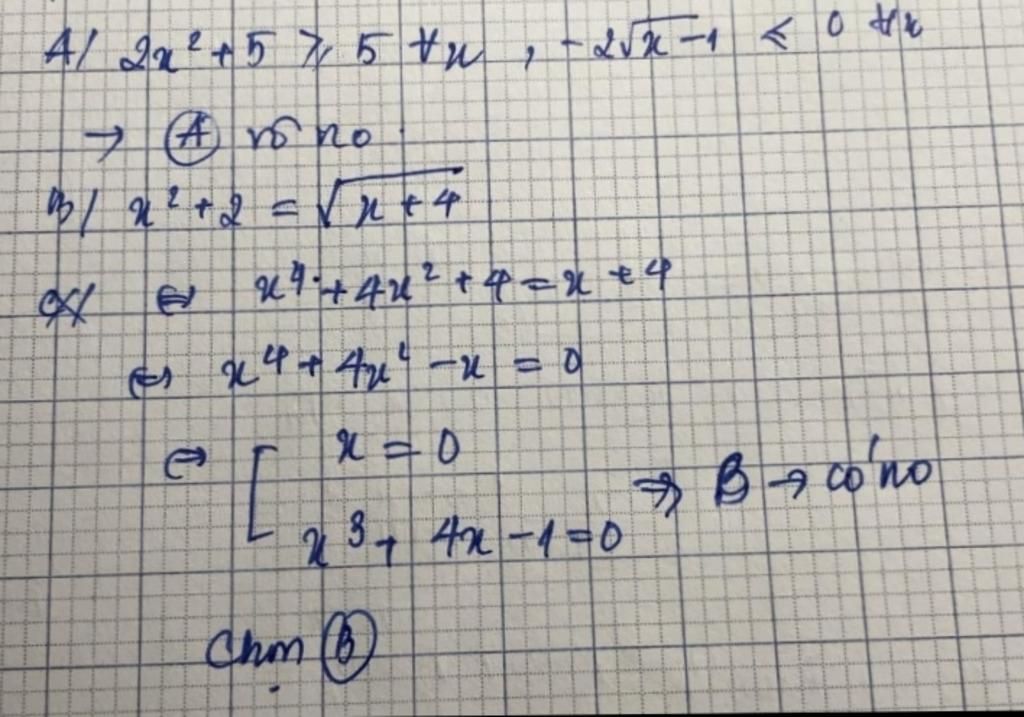 A/ 2x² + 5 ⩾ 5 ∀x , -2√x-1 ⩽ 0 ∀x
→ Ⓐ vô no
B/ x² + 2 = √(x + 4)
⇔ x⁴ + 4x² + 4 = x + 4
⇔ x⁴ + 4x² - x = 0
⇔ [ x = 0
x³ + 4x - 1 = 0 ⇒ B → có no
Chọn Ⓑ